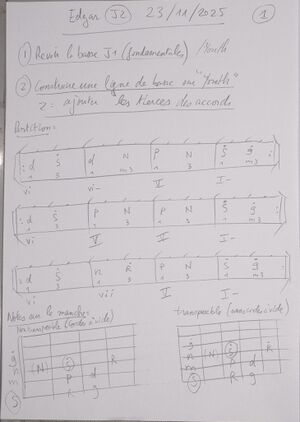 Edgar J2 23/11/2025 1
1 Revoir la basse J1 (fondamentales) / Youth
2 Construire une ligne de basse sur "Youth"
2 = ajouter les tierces des accords
Partition:
: d S d N P N S g :
1 3 1 m3 1 3 1 m3
vi vi- V I-
: d S P N P N S g :
1 3 1 3 1 3 1 m3
vi V V I-
: d S n R P N S g :
1 3 1 3 1 3 1 m3
vi vii V I-
Notes sur le manche:
transposable
N S R
P d
R g
N S R
P d
S R g